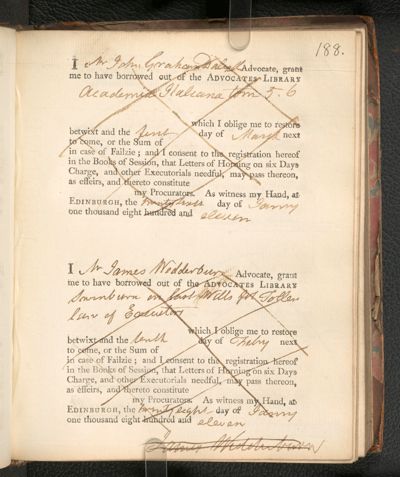 188.
I Mr John Graham Advocate, grant
me to have borrowed out of the ADVOCATES LIBRARY
Academia Italiana tom 5. 6
which I oblige me to restore
betwixt and the first day of March next
to come, or the Sum of
in case of Failzie; and I consent to the registration hereof
in the Books of Session, that Letters of Horning on six Days
Charge, and other Executorials needful, may pass thereon,
as effeirs, and thereto constitute
my Procurators. As witness my Hand, at
EDINBURGH, the day of Janry
one thousand eight hundred and eleven
I Mr James Wedderburn Advocate, grant
me to have borrowed out of the ADVOCATES LIBRARY
Swinburn on last Wills & Toller
law of Executors
which I oblige me to restore
betwixt and the tenth day of Feby next
to come, or the Sum of
in case of Failzie; and I consent to the registration hereof
in the Books of Session, that Letters of Horning on six Days
Charge, and other Executorials needful, may pass thereon,
as effeirs, and thereto constitute
my Procurators. As witness my Hand, at
EDINBURGH, the twenty eight day of Janry
one thousand eight hundred and eleven
James Wedderburn